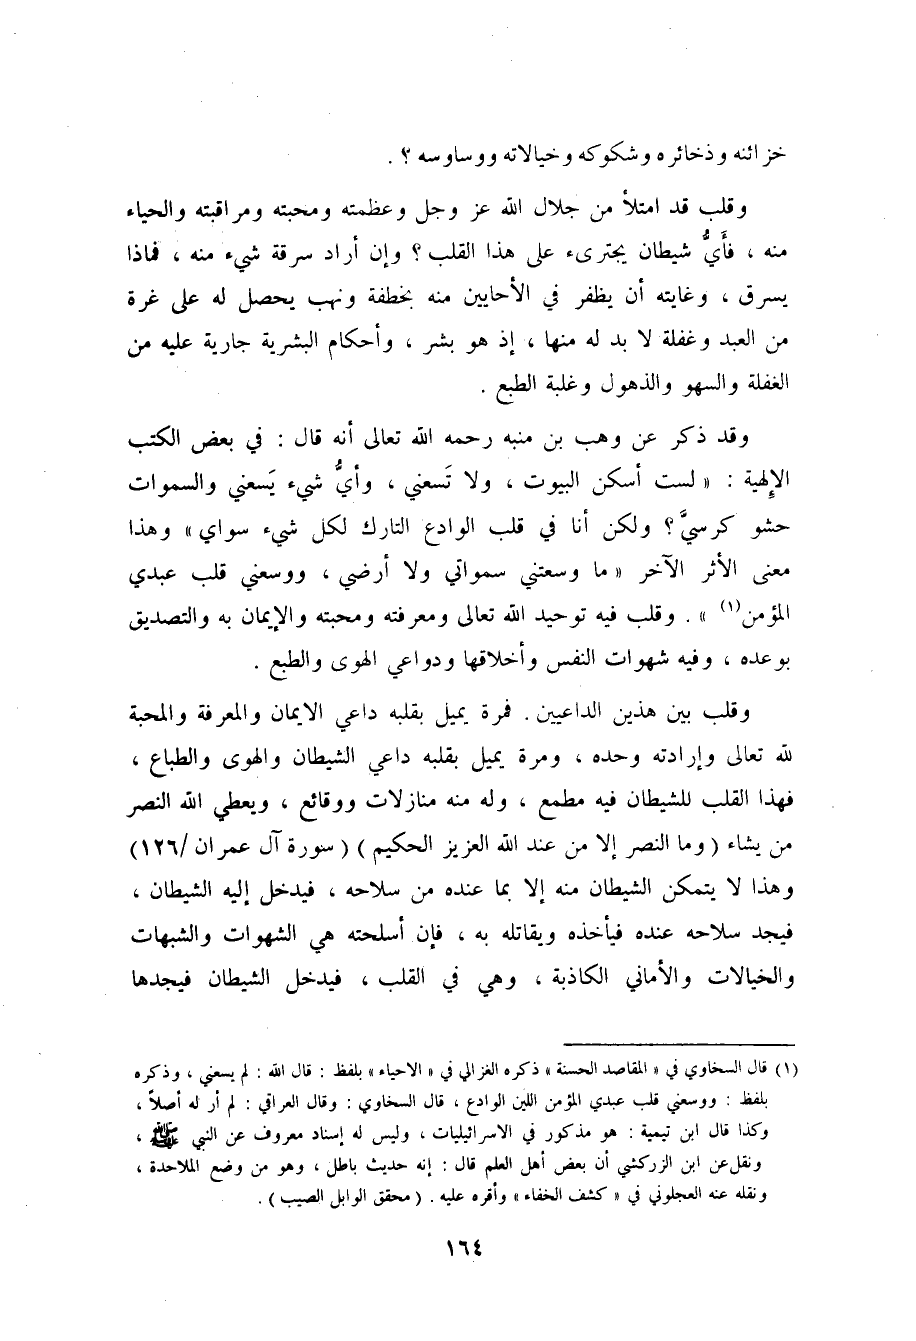 خزائنه وذخائره وشكوكه وخيالاته ووساوسه ؟ .
وقلب قد امتلأ من جلال الله عز وجل وعظمته ومحبته ومراقبته والحياء
منه ، فأَيُّ شيطان يجترىء على هذا القلب ؟ وإن أراد سرقة شيء منه ، فماذا
يسرق ، وغايته أن يظفر في الأحايين منه بخطفة ونهب يحصل له على غرة
من العبد وغفلة لا بد له منها ، إذ هو بشر ، وأحكام البشرية جارية عليه من
الغفلة والسهو والذهول وغلبة الطبع .
وقد ذكر عن وهب بن منبه رحمه الله تعالى أنه قال : في بعض الكتب
الإلهية : « لست أسكن البيوت ، ولا تَسعني ، وأيُّ شيء يَسعني والسموات
حشو كرسيَّ ؟ ولكن أنا في قلب الوادع التارك لكل شيء سواي » وهذا
معنى الأثر الآخر « ما وسعتني سمواتي ولا أرضي ، ووسعني قلب عبدي
المؤمن(١) » . وقلب فيه توحيد الله تعالى ومعرفته ومحبته والإيمان به والتصديق
بوعده ، وفيه شهوات النفس وأخلاقها ودواعي الهوى والطبع .
وقلب بين هذين الداعيين . فمرة يميل بقلبه داعي الايمان والمعرفة والمحبة
لله تعالى وإرادته وحده ، ومرة يميل بقلبه داعي الشيطان والهوى والطباع ،
فهذا القلب للشيطان فيه مطمع ، وله منه منازلات ووقائع ، ويعطي الله النصر
من يشاء ( وما النصر إلا من عند الله العزيز الحكيم ) ( سورة آل عمران /١٢٦)
وهذا لا يتمكن الشيطان منه إلا بما عنده من سلاحه ، فيدخل إليه الشيطان ،
فيجد سلاحه عنده فيأخذه ويقاتله به ، فإن أسلحته هي الشهوات والشبهات
والخيالات والأماني الكاذبة ، وهي في القلب ، فيدخل الشيطان فيجدها
(١) قال السخاوي في « المقاصد الحسنة » ذكره الغزالي في « الاحياء » بلفظ : قال الله : لم يسعني ، وذكره
بلفظ : ووسعني قلب عبدي المؤمن اللين الوادع ، قال السخاوي : وقال العراقي : لم أر له أصلاً ،
وكذا قال ابن تيمية : هو مذكور في الاسرائيليات ، وليس له إسناد معروف عن النبي ﷺ ،
ونقل عن ابن الزركشي أن بعض أهل العلم قال : إنه حديث باطل ، وهو من وضع الملاحدة ،
ونقله عنه العجلوني في « كشف الخفاء » وأقره عليه . ( محقق الوابل الصيب ) .
١٦٤